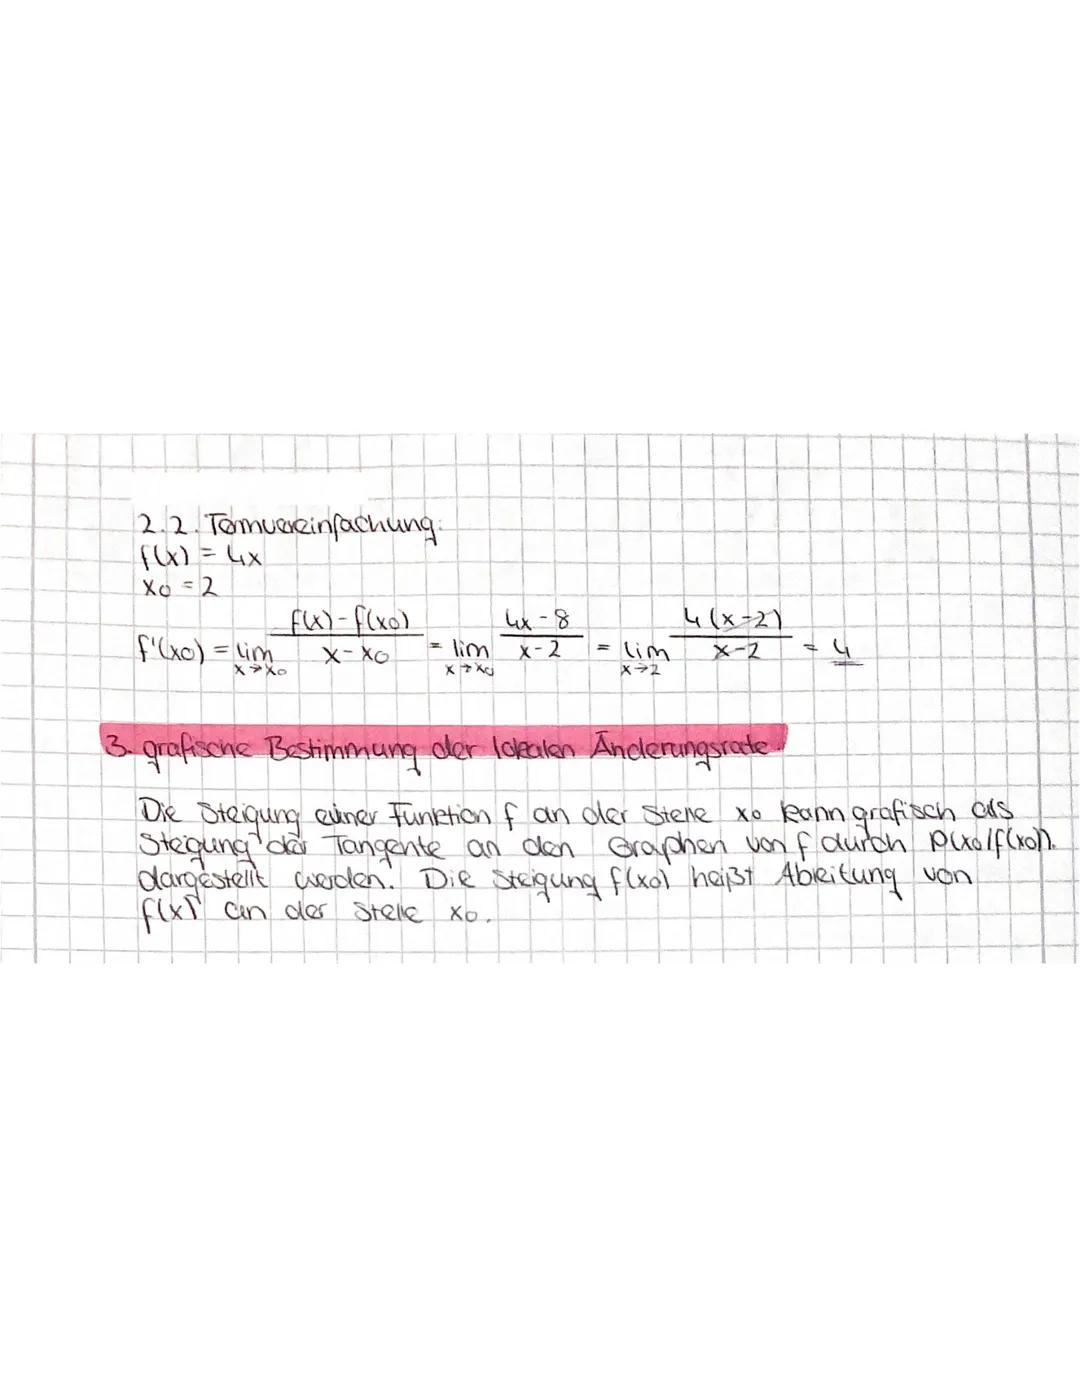 2.2. Termvereinfachung:
f(x) = 4x
x₀ = 2
f'(x₀) = lim x→x₀ (f(x) - f(x₀))/(x - x₀) = lim x→x₀ (4x - 8)/(x - 2) = lim x→2 (4(x-2))/(x-2) = 4
3. grafische Bestimmung der lokalen Änderungsrate.
Die Steigung einer Funktion f an der Stelle x₀ kann grafisch als
Stegung der Tangente an den Graphen von f durch P(x₀/f(x₀)).
dargestellt werden. Die Steigung f(x₀) heißt Ableitung von
f(x) an der Stelle x₀.